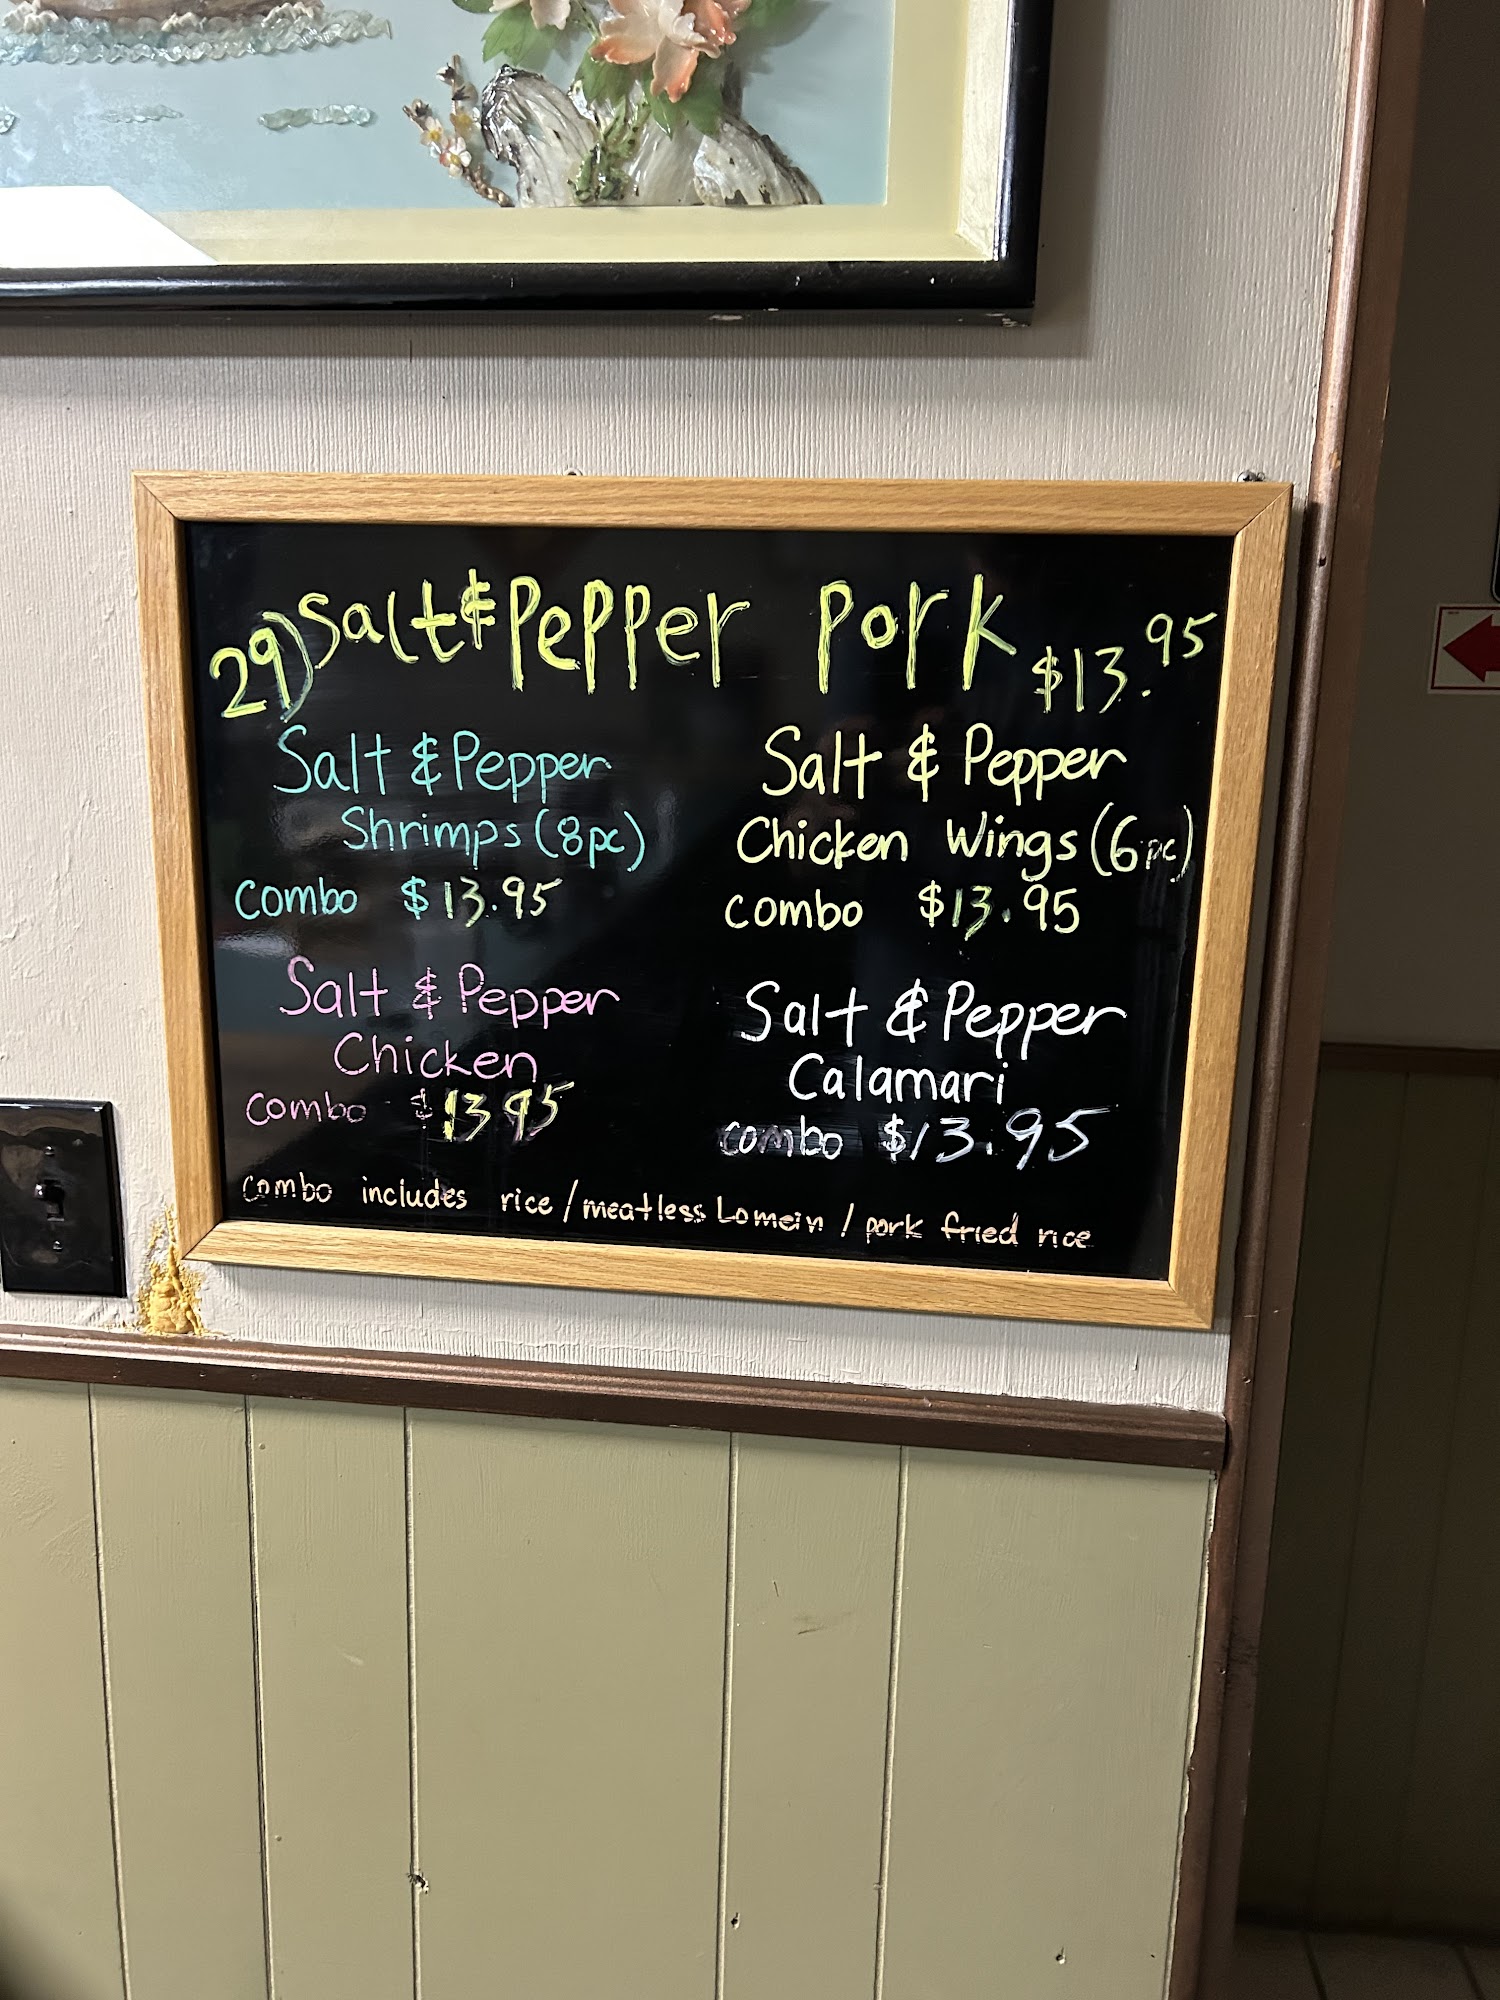 29) Salt & Pepper Pork $13.95
Salt & Pepper
Shrimps (8pc)
combo $13.95
Salt & Pepper
Chicken Wings (6pc)
combo $13.95
Salt & Pepper
Chicken
combo $13.95
Salt & Pepper
Calamari
combo $13.95
combo includes rice / meatless Lomein / pork fried rice